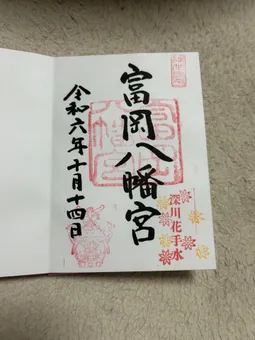 富岡八幡宮
令和六年十月十四日
深川花手水